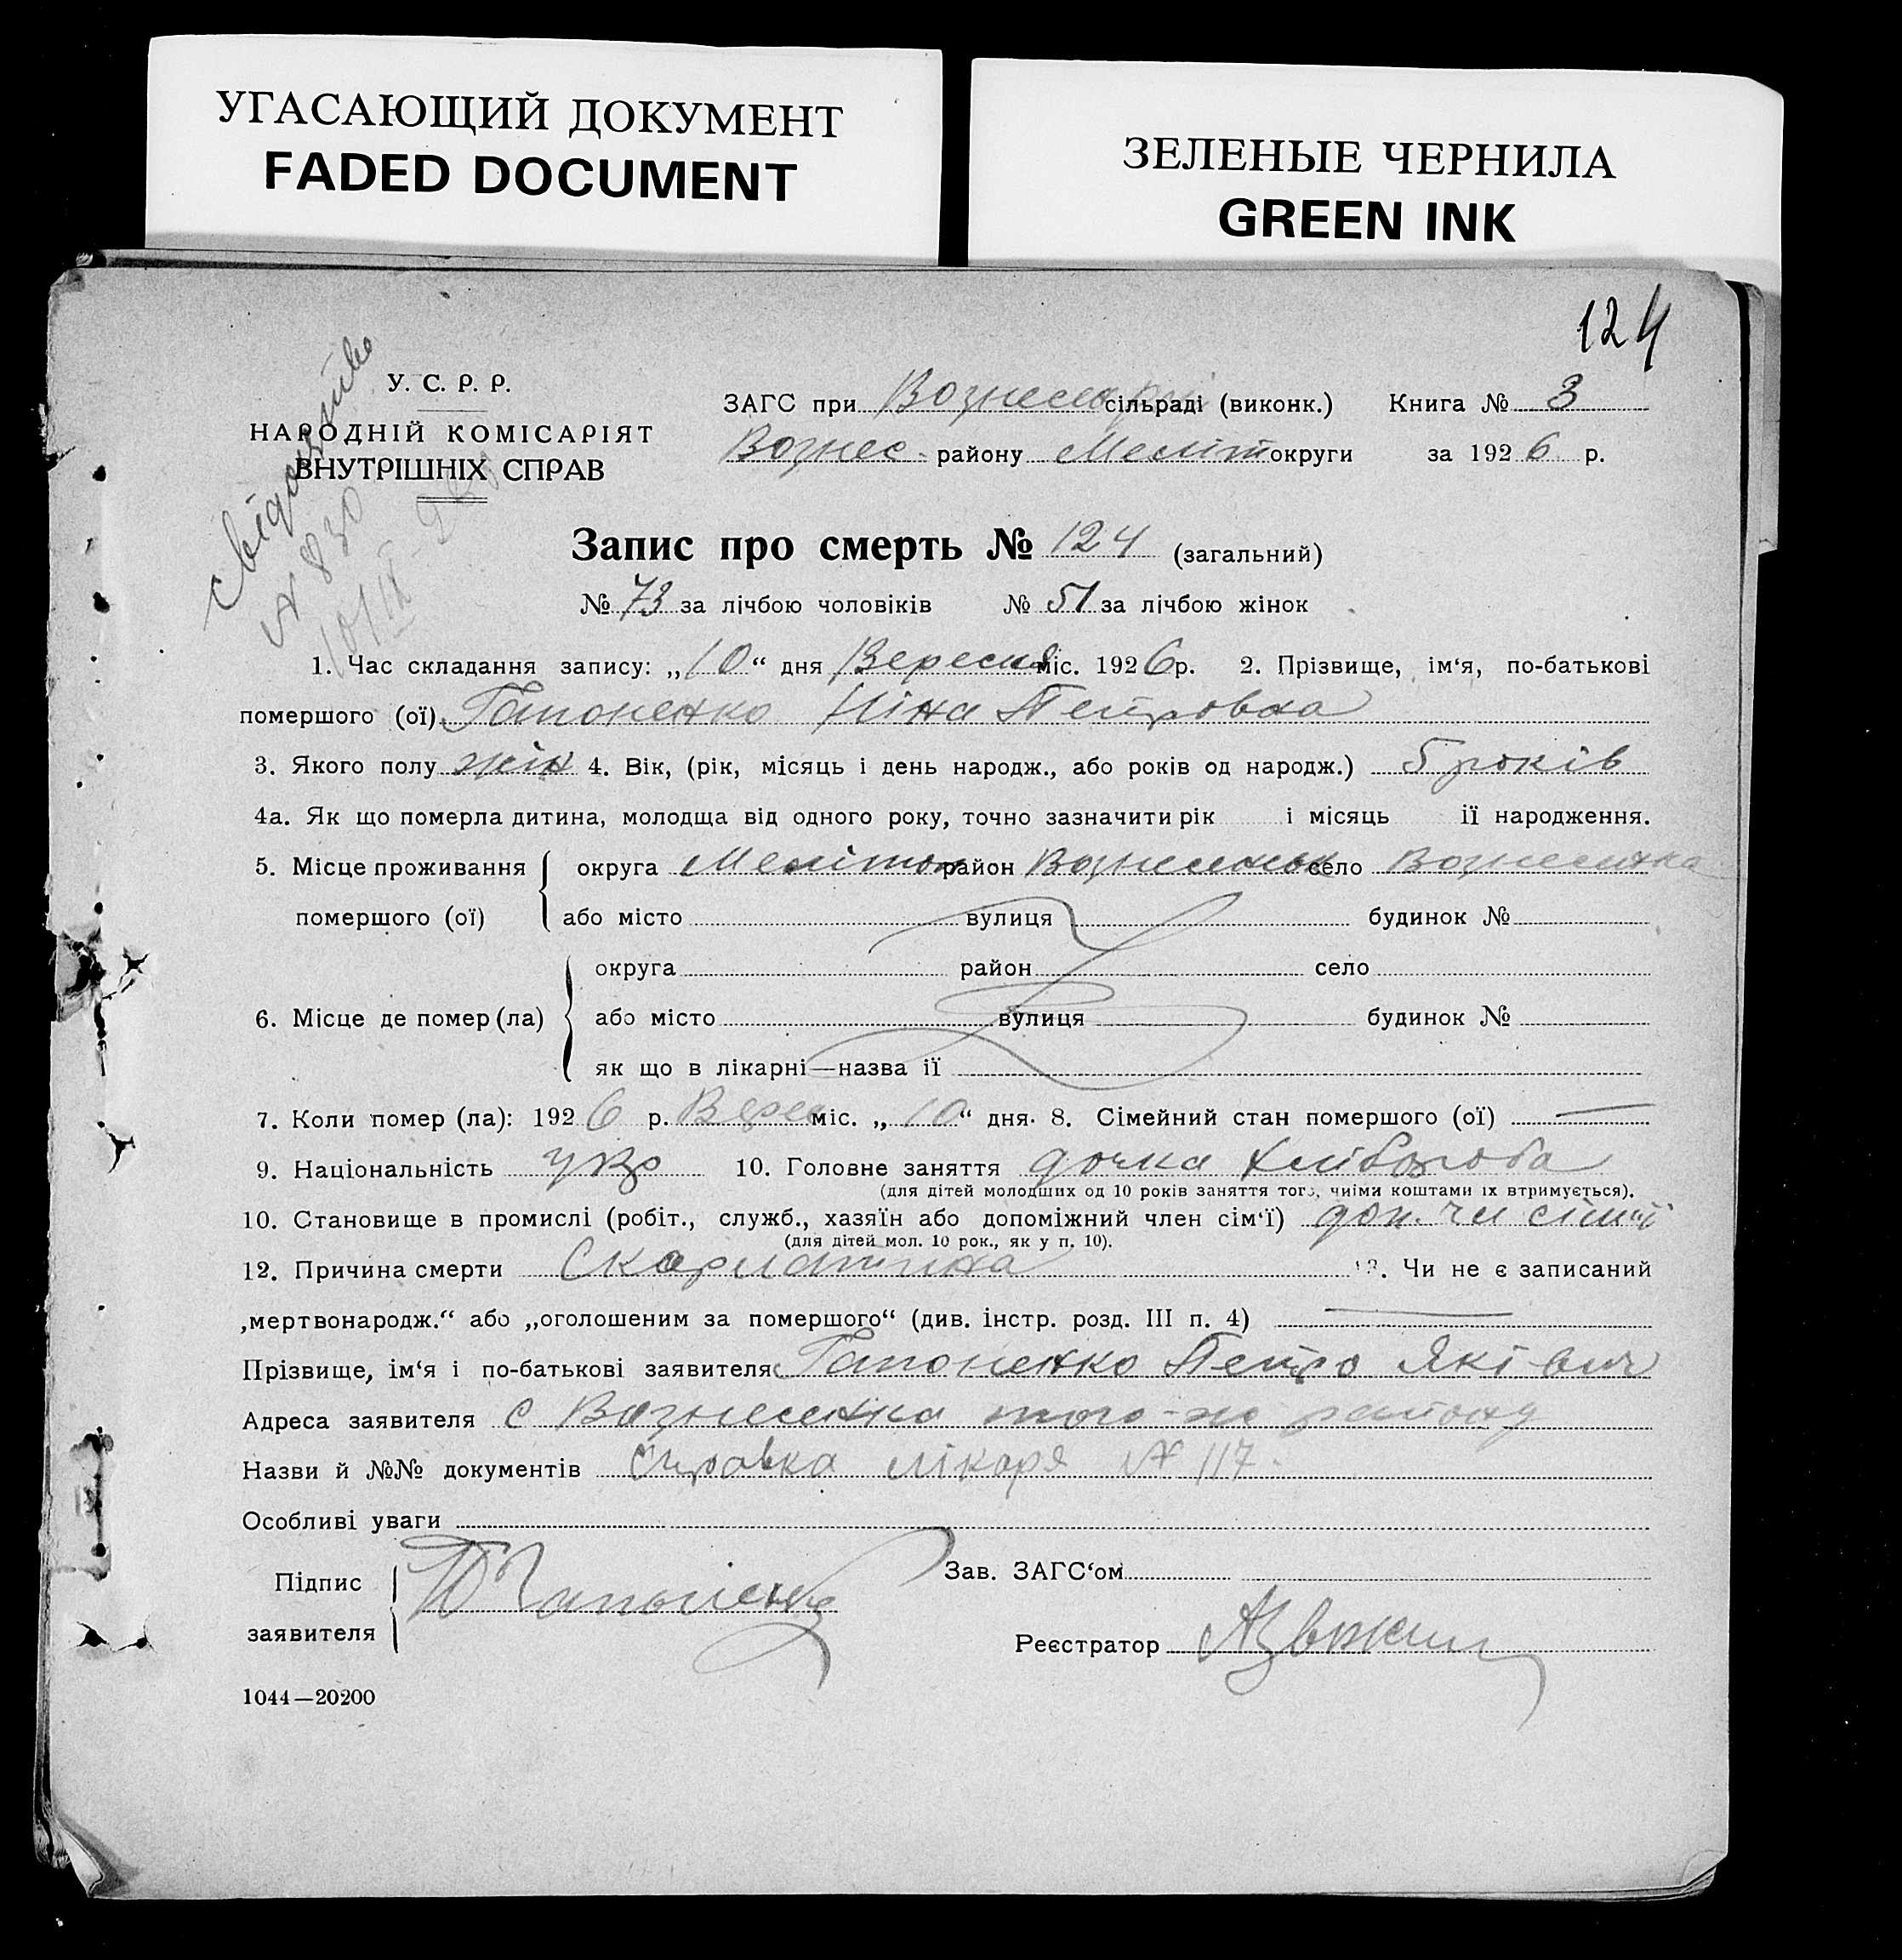 УГАСАЮЩИЙ ДОКУМЕНТ
FADED DOCUMENT
ЗЕЛЕНЫЕ ЧЕРНИЛА
GREEN INK
124
Свідоцтво
N 830
10/IX
У. С. Р. Р.
НАРОДНІЙ КОМІСАРІЯТ
ВНУТРІШНІХ СПРАВ
ЗАГС при сільраді (виконк.) Книга № 3
Вознес. району Меліт округи за 1926 р.
Запис про смерть № 124 (загальний)
№ 73 за лічбою чоловіків № 51 за лічбою жінок
1. Час складання запису: „10“ дня Вересня міс. 1926 р. 2. Прізвище, ім‘я, по-батькові
помершого (ої) Гапоненко Ніна Петровна
3. Якого полу жін 4. Вік, (рік, місяць і день народж., або років од народж.) 5 років
4а. Як що померла дитина, молодща від одного року, точно зазначити рік і місяць ії народження.
5. Місце проживання округа Мелітоп район Вознесенськ село Вознесенка
помершого (ої) або місто вулиця будинок №
округа район село
6. Місце де помер (ла) або місто вулиця будинок №
як що в лікарні—назва ії
7. Коли помер (ла): 1926 р. Верес міс. „10“ дня. 8. Сімейний стан помершого (ої) —
9. Національність укр 10. Головне заняття дочка хлібороба
(для дітей молодших од 10 років заняття того, чиіми коштами іх втримується).
10. Становище в промислі (робіт., служб., хазяїн або допоміжний член сім‘ї) доп. чл сімї
(для дітей мол. 10 рок., як у п. 10).
12. Причина смерти Скарлатина 13. Чи не є записаний
„мертвонародж.“ або „оголошеним за помершого“ (див. інстр. розд. III п. 4) —
Прізвище, ім‘я і по-батькові заявителя Гапоненко Петро Яківич
Адреса заявителя с Вознесенка того-же району
Назви й №№ документів Справка лікаря N 117.
Особливі уваги
Підпис
заявителя П Гапоненко
Зав. ЗАГС‘ом
Реєстратор
1044—20200